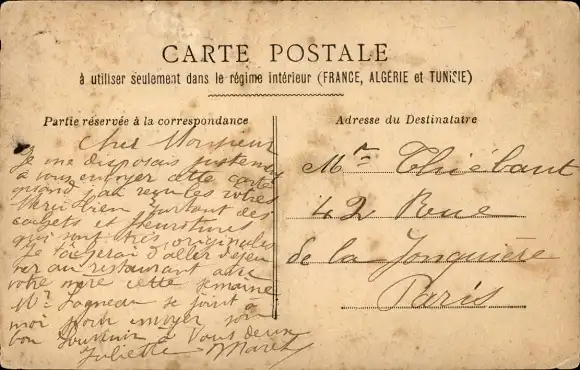 CARTE POSTALE
à utiliser seulement dans le régime intérieur (FRANCE, ALGÉRIE et TUNISIE)
Partie réservée à la correspondance
Cher Monsieur
Je me disposais justement
à vous envoyer cette carte
quand j'ai reçu les vôtres
Merci bien surtout des
cachets et
qui sont très originales
Je d'aller déjeu
ner au restaurant avec
votre mère cette semaine
Mr Lagneau se joint à
moi pour envoyer son
bon souvenir à vous deux
Juliette Maret
Adresse du Destinataire
Mr Thiébaut
42 Rue
de la Jonquière
Paris